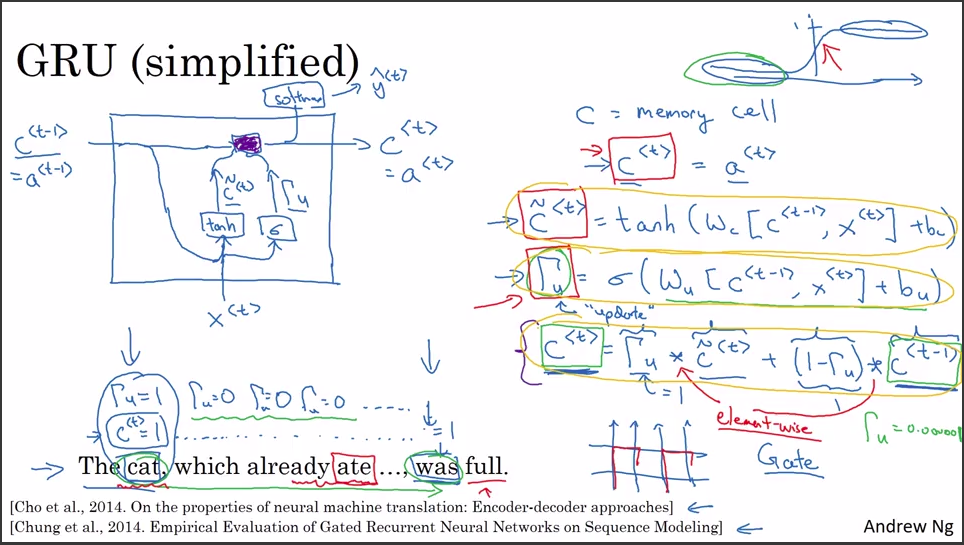 GRU (simplified)
softmax
ŷ<t>
c<t-1>
= a<t-1>
c<t>
= a<t>
c̃<t>
Γu
tanh
σ
x<t>
1
C = memory cell
c<t> = a<t>
c̃<t> = tanh (Wc [c<t-1>, x<t>] + bc)
Γu = σ (Wu [c<t-1>, x<t>] + bu)
"update"
c<t> = Γu * c̃<t> + (1-Γu) * c<t-1>
= 1
element-wise
Γu = 0.000001
Gate
Γu=1 Γu=0 Γu=0 Γu=0 ......
c<t>=1 ............ =1
The cat, which already ate …, was full.
[Cho et al., 2014. On the properties of neural machine translation: Encoder-decoder approaches]
[Chung et al., 2014. Empirical Evaluation of Gated Recurrent Neural Networks on Sequence Modeling]
Andrew Ng